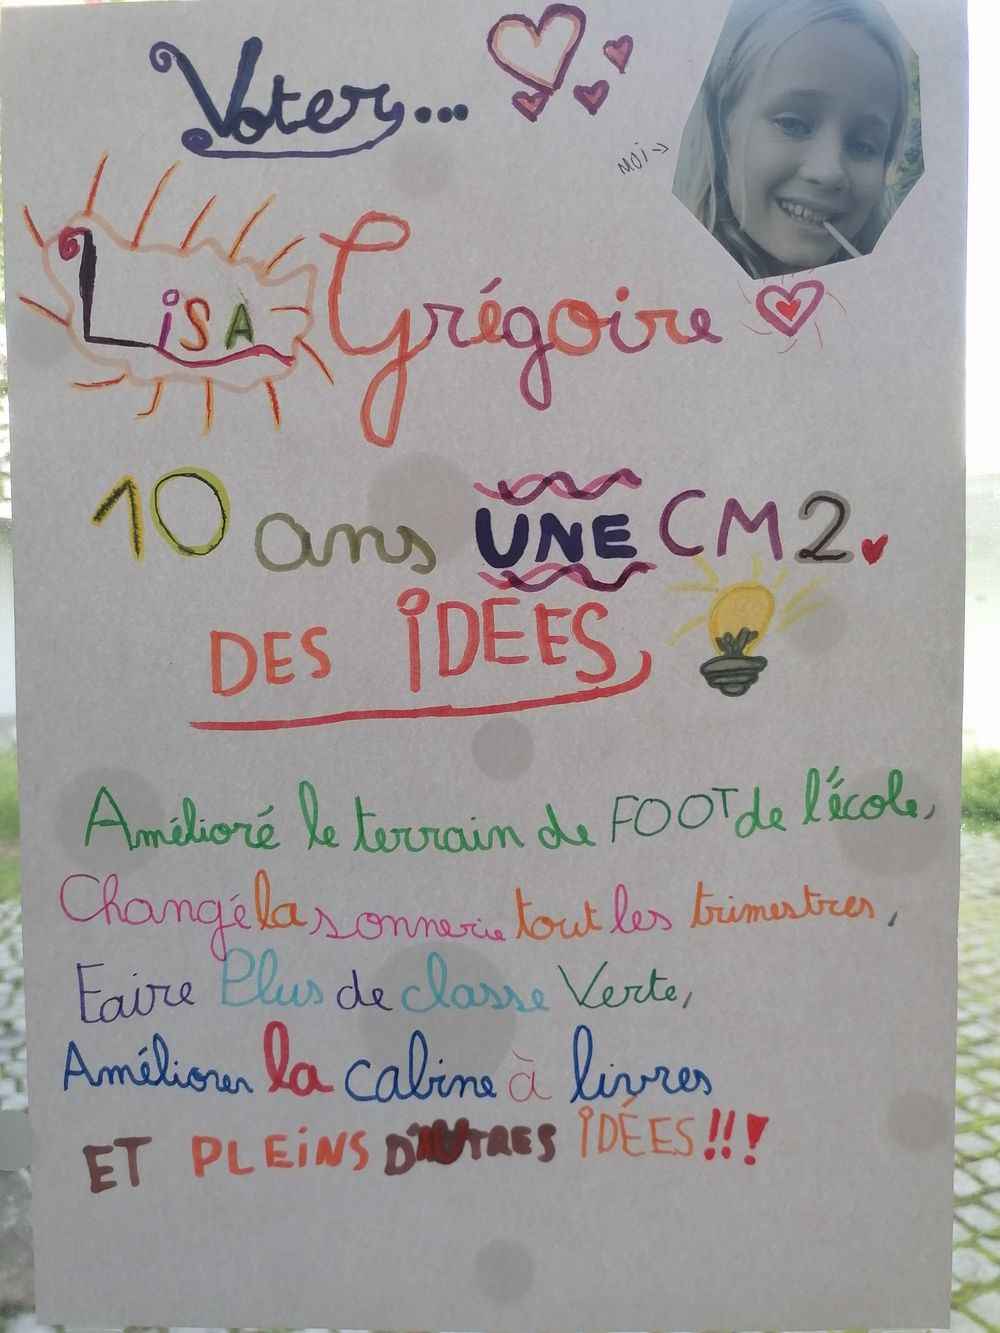 Voter...
MOI →
LiSA Grégoire
10 ans UNE CM2.
DES IDEES
Amélioré le terrain de FOOT de l'école,
Changé la sonnerie tout les trimestres,
Faire Plus de classe Verte,
Améliorer la cabine à livres
ET PLEINS D'AUTRES IDÉES!!!